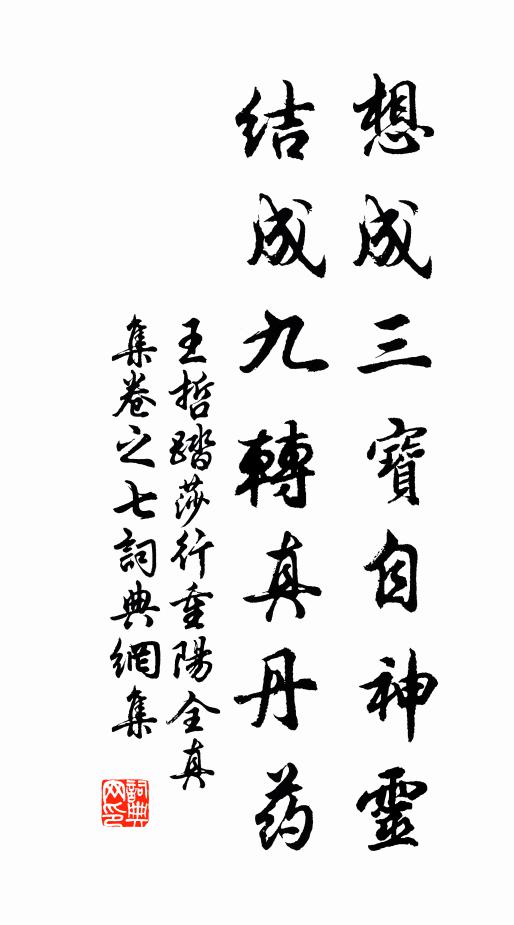 想成三寶自神靈
結成九轉真丹药
王哲踏莎行重陽全真
集卷之七詞典網集
詞典
网印